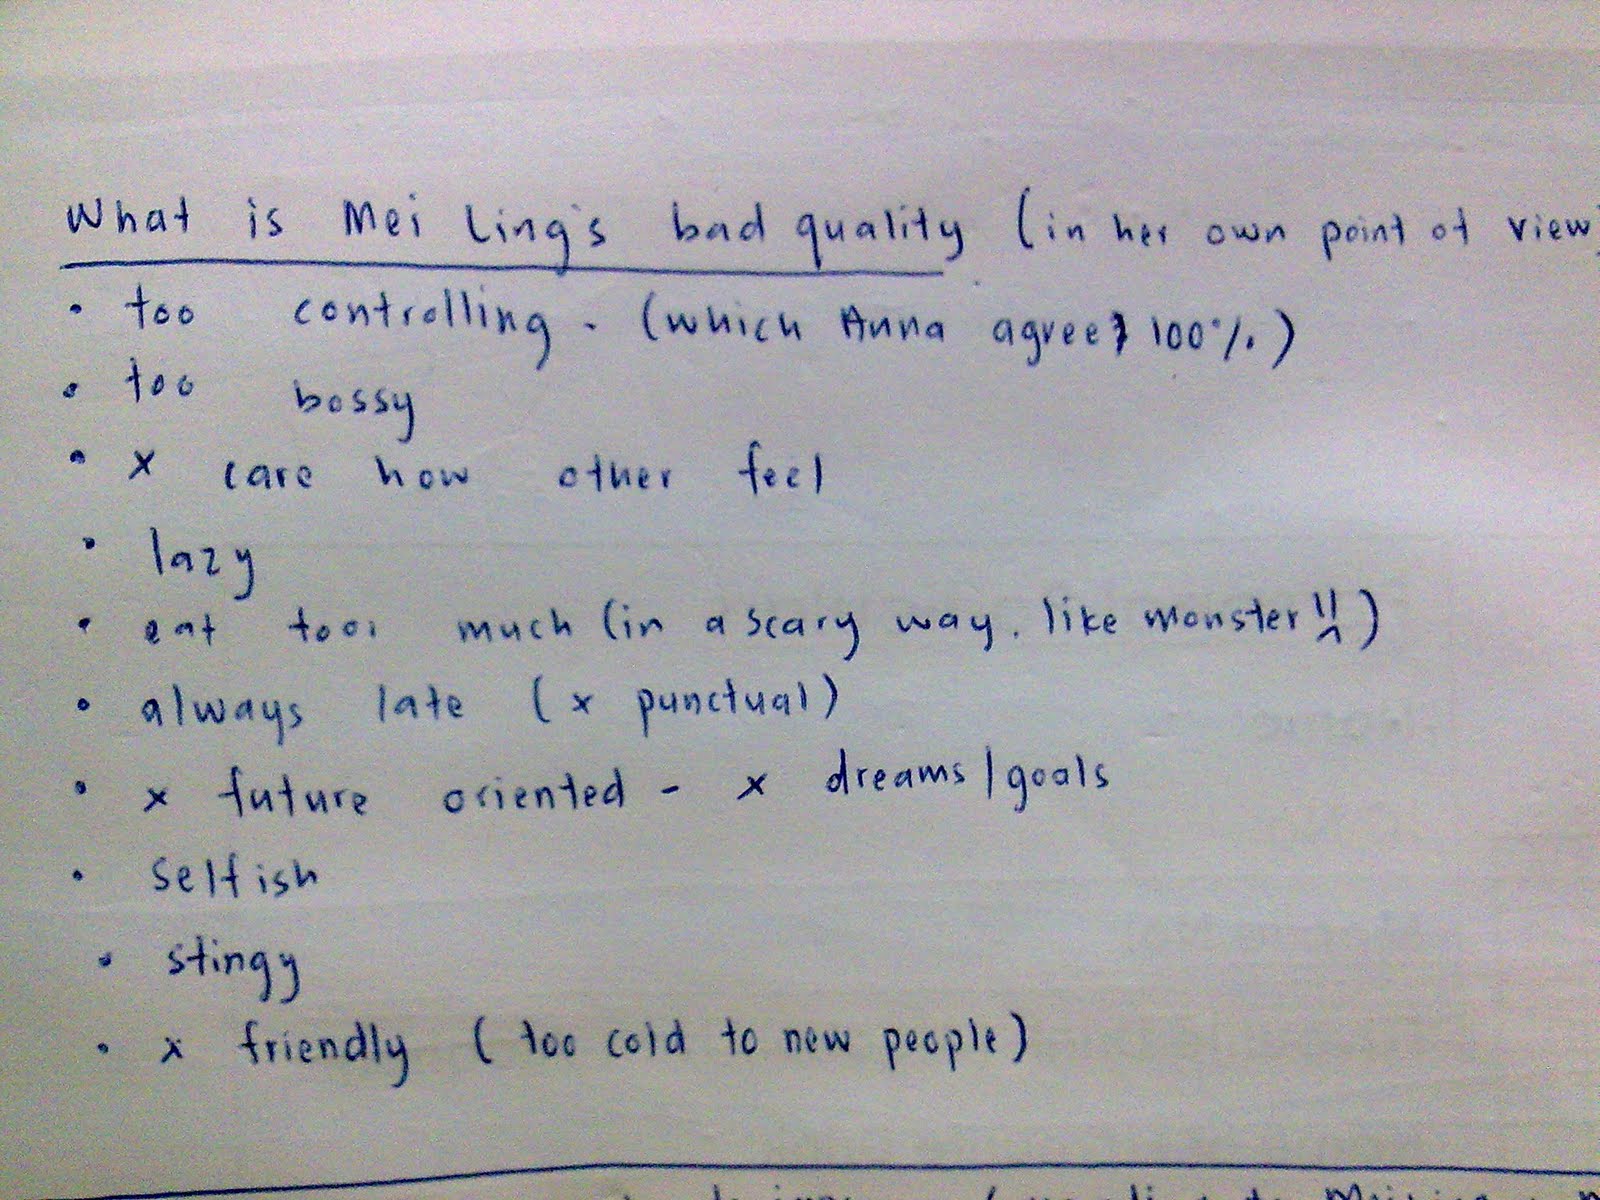 What is Mei Ling's bad quality (in her own point of view)
• too controlling. (which Anna agree 100%.)
• too bossy
• x care how other feel
• lazy
• eat too much (in a scary way. like monster!!)
• always late (x punctual)
• x future oriented - x dreams/goals
• selfish
• stingy
• x friendly (too cold to new people)